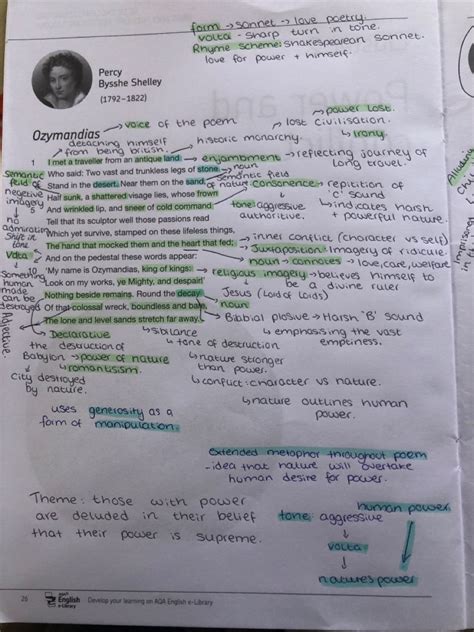 form → sonnet → love poetry.
volta - sharp turn in tone.
Rhyme scheme: shakespearean sonnet.
love for power + himself.
Percy
Bysshe Shelley
(1792–1822)
Ozymandias
→ voice of the poem
→ power lost.
lost civilisation.
→ irony
detaching himself
from being british.
historic monarchy.
1 I met a traveller from an antique land
→ enjambment → reflecting journey of
long travel.
Who said: Two vast and trunkless legs of stone
→ noun
semantic field
of nature
Stand in the desert. Near them on the sand
Half sunk, a shattered visage lies, whose frown
consonence → repitition of
'c' sound
5 And wrinkled lip, and sneer of cold command,
tone: aggressive
authoritive.
→ indicates harsh
+ powerful nature.
Tell that its sculptor well those passions read
Which yet survive, stamped on these lifeless things,
The hand that mocked them and the heart that fed;
→ inner conflict (character vs self)
→ Juxtaposition → Imagery of ridicule.
And on the pedestal these words appear:
noun → connotes → love, care, welfare
10 'My name is Ozymandias, king of kings:
→ religious imagery → believes himself to
be a divine ruler
Look on my works, ye Mighty, and despair!'
Jesus (Lord of Lords)
Nothing beside remains. Round the decay
noun
Of that colossal wreck, boundless and bare,
→ Bibbial plosive → Harsh 'B' sound
The lone and level sands stretch far away.
→ emphasising the vast
emptiness.
Semantic
field of
negetive
imagery
no
admiration
Shift in
tone
Volta
Something
human
made
can be
destroyed
Adjective
Declarative
sibilance
the destruction of
Babylon → power of nature
→ romantisism.
City destroyed
by nature.
tone of destruction
nature stronger
than power.
→ conflict: character vs nature.
→ nature outlines human
power.
uses generosity as a
form of manipulation.
Extended metophor throughout poem
- idea that nature will overtake
human desire for power.
Theme: those with power
are deluded in their belief
that their power is supreme.
tone: aggressive
↓
volta
↓
natures power
human power
26
AQA
English
e-Library
Develop your learning on AQA English e-Library